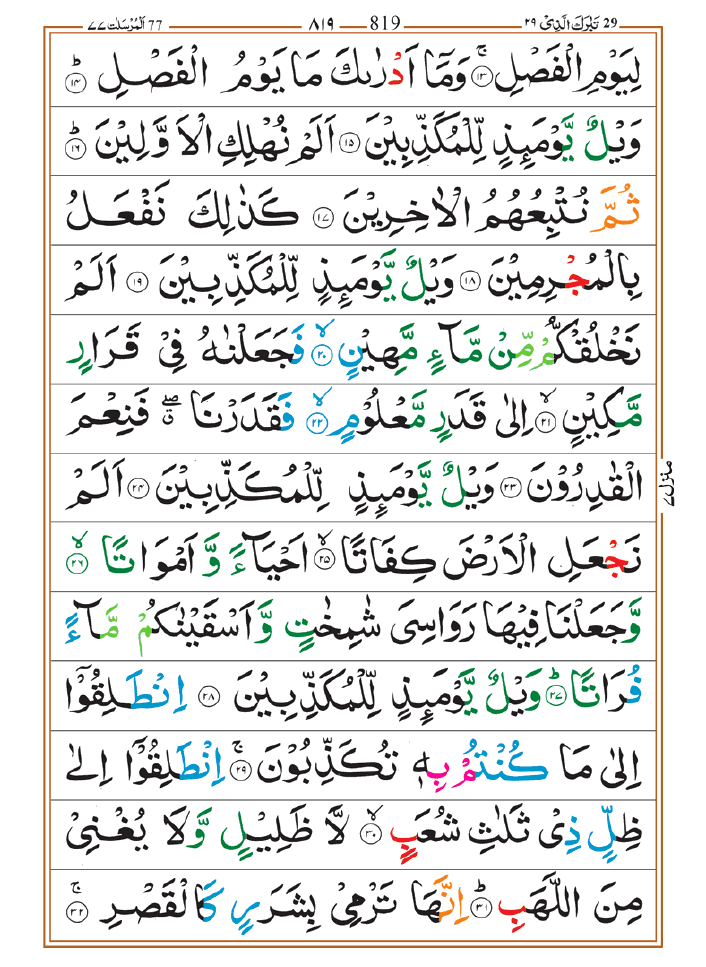 29 تَبٰرَكَ الَّذِىْ ٢٩ — 819 — ٨١٩ — 77 اَلْمُرْسَلٰت ٧٧
لِيَوْمِ الْفَصْلِ ۚ ١٣ وَمَاۤ اَدْرٰىكَ مَا يَوْمُ الْفَصْلِ ؕ ١٤
وَيْلٌ يَّوْمَئِذٍ لِّلْمُكَذِّبِيْنَ ١٥ اَلَمْ نُهْلِكِ الْاَوَّلِيْنَ ؕ ١٦
ثُمَّ نُتْبِعُهُمُ الْاٰخِرِيْنَ ١٧ كَذٰلِكَ نَفْعَلُ
بِالْمُجْرِمِيْنَ ١٨ وَيْلٌ يَّوْمَئِذٍ لِّلْمُكَذِّبِيْنَ ١٩ اَلَمْ
نَخْلُقْكُّمْ مِّنْ مَّآءٍ مَّهِيْنٍ ۙ ٢٠ فَجَعَلْنٰهُ فِىْ قَرَارٍ
مَّكِيْنٍ ۙ ٢١ اِلٰى قَدَرٍ مَّعْلُوْمٍ ۙ ٢٢ فَقَدَرْنَا ۖۗ فَنِعْمَ
الْقٰدِرُوْنَ ٢٣ وَيْلٌ يَّوْمَئِذٍ لِّلْمُكَذِّبِيْنَ ٢٤ اَلَمْ
نَجْعَلِ الْاَرْضَ كِفَاتًا ۙ ٢٥ اَحْيَآءً وَّاَمْوَاتًا ۙ ٢٦
وَّجَعَلْنَا فِيْهَا رَوَاسِىَ شٰمِخٰتٍ وَّاَسْقَيْنٰكُمْ مَّآءً
فُرَاتًا ؕ ٢٧ وَيْلٌ يَّوْمَئِذٍ لِّلْمُكَذِّبِيْنَ ٢٨ اِنْطَلِقُوْۤا
اِلٰى مَا كُنْتُمْ بِهٖ تُكَذِّبُوْنَ ۚ ٢٩ اِنْطَلِقُوْۤا اِلٰى
ظِلٍّ ذِىْ ثَلٰثِ شُعَبٍ ۙ ٣٠ لَّا ظَلِيْلٍ وَّلَا يُغْنِىْ
مِنَ اللَّهَبِ ؕ ٣١ اِنَّهَا تَرْمِىْ بِشَرَرٍ كَالْقَصْرِ ۚ ٣٢
منزل ٧